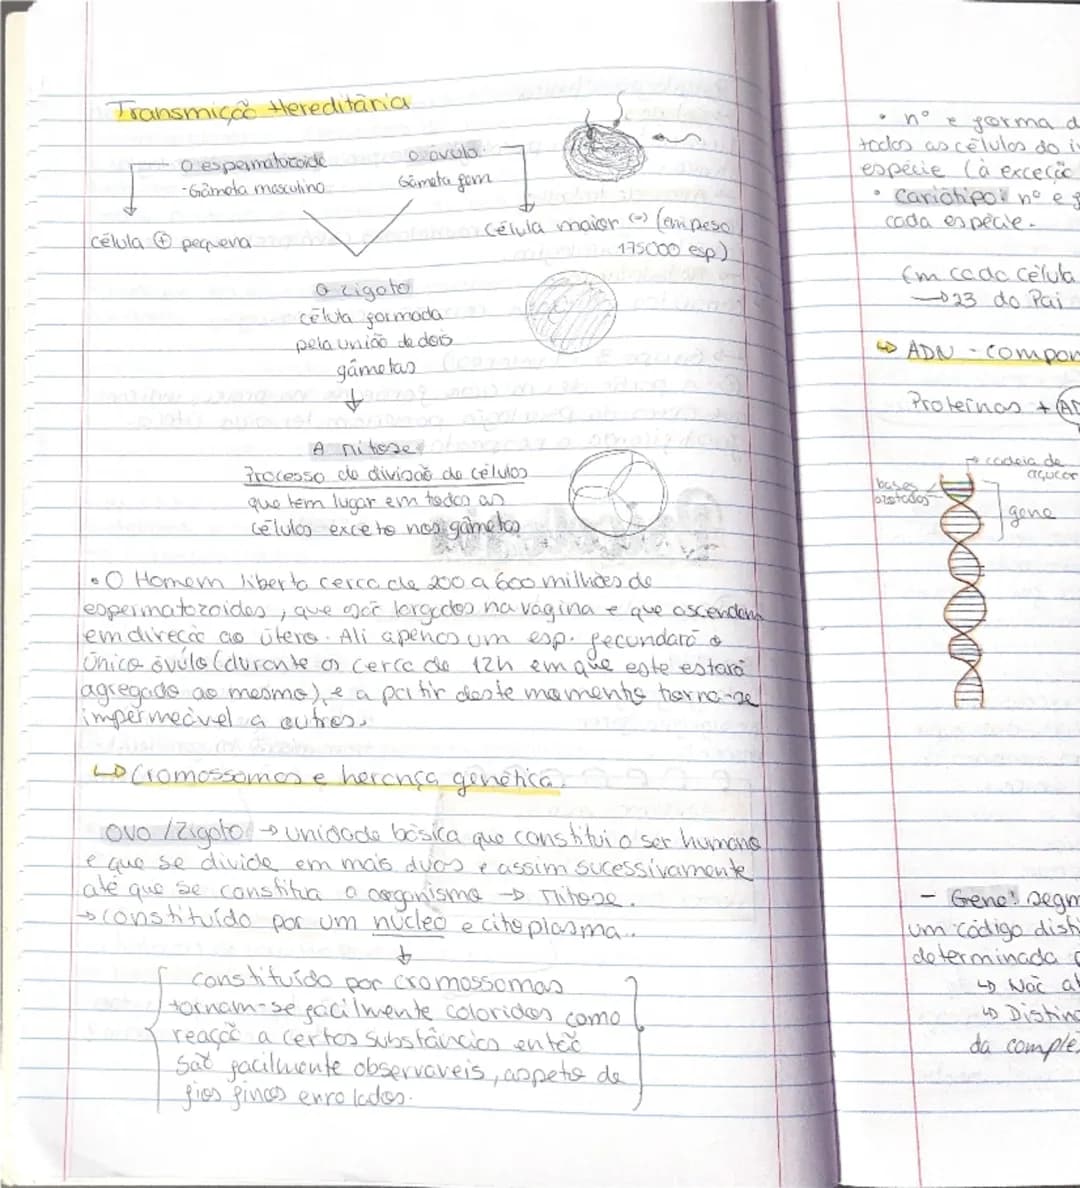 Transmição Hereditária
O espermatozoide
O óvulo
- Gâmeta masculino
Gâmeta fem
célula ⊕ pequena
Célula maior (=) (em peso
175000 esp)
O zigoto
célula formada
pela união de dois
gâmetas
A mitose
Processo de divisão de células
que tem lugar em todas as
células exceto nos gâmetas
• O Homem liberta cerca de 200 a 600 milhões de
espermatozoides, que são largados na vagina e que ascendem
em direção ao útero. Ali apenas um esp. fecundará o
único óvulo (durante as cerca de 12h em que este estará
agregado ao mesmo), e a partir deste momento torna-se
impermeável a outros.
↳ Cromossomas e herança genética.
Ovo / Zigoto → unidade básica que constitui o ser humano
e que se divide em mais duas e assim sucessivamente
até que se constitua o organismo → Mitose.
→ constituído por um núcleo e citoplasma..
constituído por cromossomas
tornam-se facilmente coloridos como
reação a certas substâncias então
são facilmente observaveis, aspeto de
fios finos enrolados.
• nº e forma d
todas as células do i
espécie (à exceção
• Cariótipo: nº e f
cada espécie.
Em cada célula
→ 23 do Pai
↳ ADN - compon
Proteínas + AD
cadeia de
açucar
bases
azotadas
gene
- Gene: segm
um código disti
determinada p
↳ Não al
↳ Disting
da comple